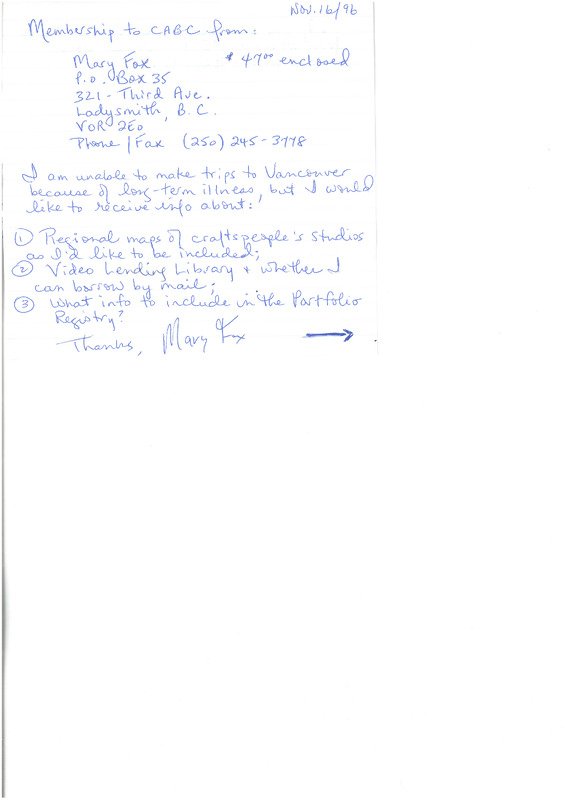 Nov. 16/96
Membership to CABC from:
Mary Fox $47.00 enclosed
P.O. Box 35
321 - Third Ave.
Ladysmith, B.C.
V0R 2E0
Phone/Fax (250) 245-3778
I am unable to make trips to Vancouver
because of long-term illness, but I would
like to receive info about:
① Regional maps of craftspeople's studios
as I'd like to be included;
② Video Lending Library + whether I
can borrow by mail;
③ What info to include in the Portfolio
Registry?
Thanks, Mary Fox